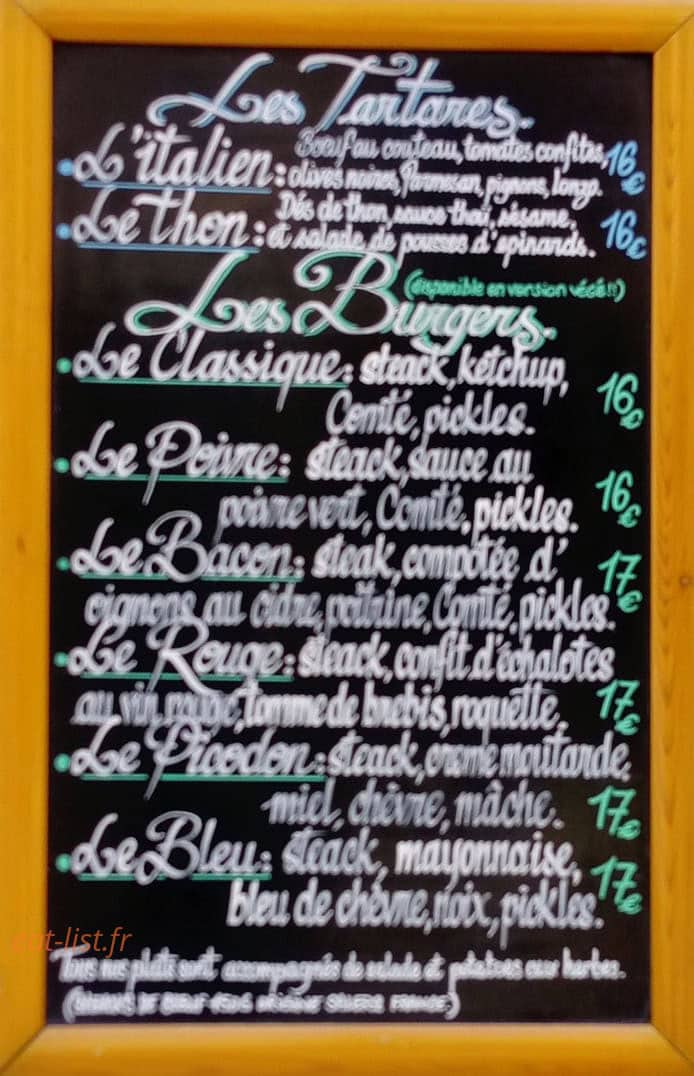 Les Tartares.
L'italien: Boeuf au couteau, tomates confites, 16€
olives noires, Parmesan, pignons, lonzo.
Le thon: Dés de thon, sauce thaï, sésame, 16€
et salade de pousses d'épinards.
Les Burgers. (disponible en version végé!!)
Le Classique: steack, ketchup,
Comté, pickles. 16€
Le Poivre: steack, sauce au
poivre vert, Comté, pickles. 16€
Le Bacon: steak, compotée d' 17€
oignons au cidre, poitrine, Comté, pickles.
Le Rouge: steack, confit d'échalotes
au vin rouge, tomme de brebis, roquette. 17€
Le Picodon: steack, creme moutarde,
miel, chèvre, mâche. 17€
Le Bleu: steack, mayonnaise, 17€
bleu de chèvre, noix, pickles.
out-list.fr
Tous nos plats sont accompagnés de salade et potatoes aux herbes.
FRANCE)